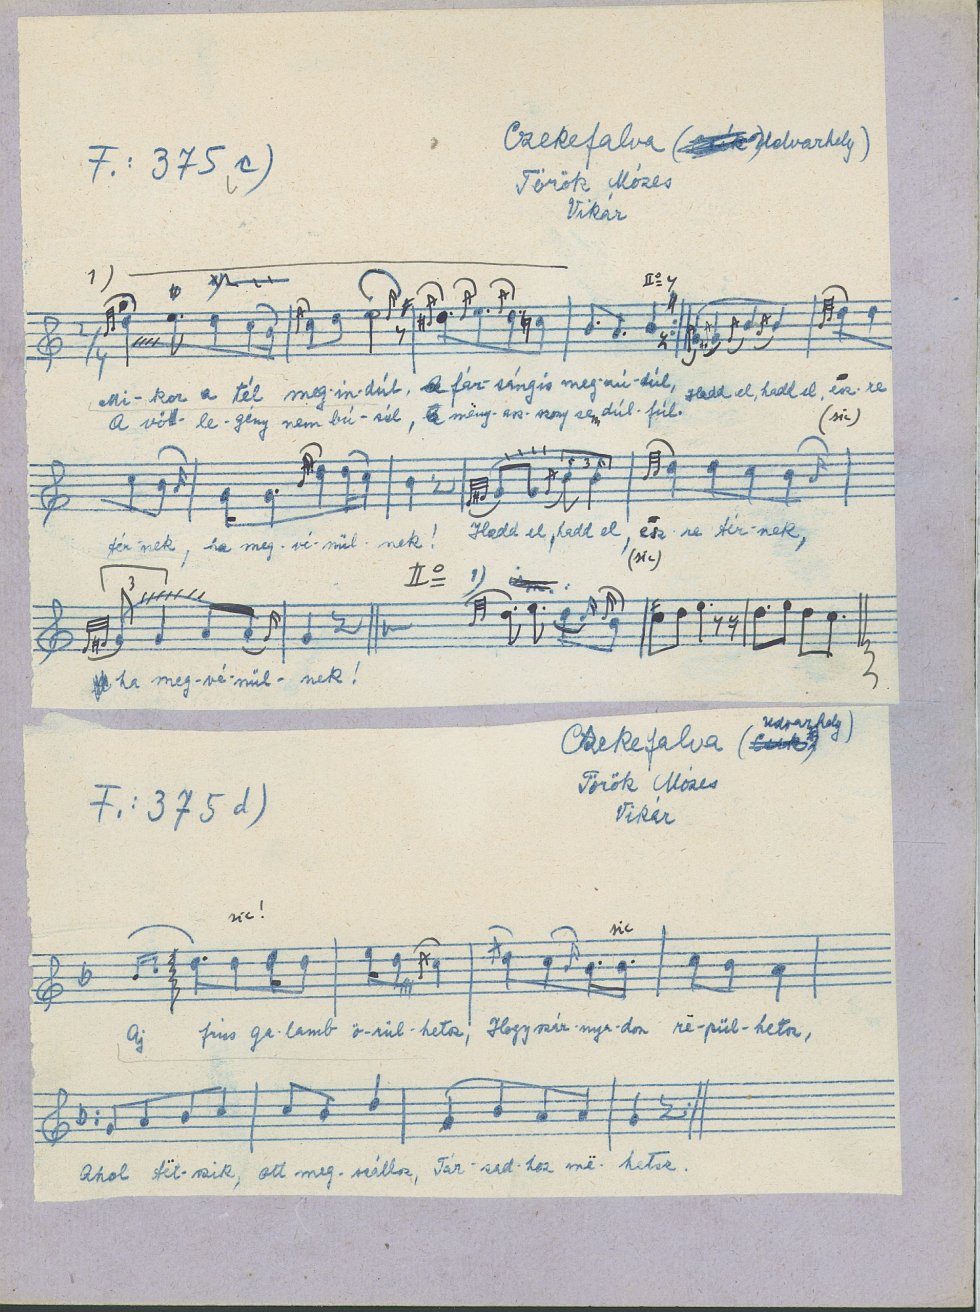 F.: 375 c)
Czekefalva (Udvarhely)
Török Mózes
Vikár
1)
IIº
Mi-kor a tél meg-in-dúl, A fár-sángis meg-zú-dúl, Hadd el, hadd el, ësz-re
A vőt-le-gény nem bú-súl, A mëny-asz-szony sem dúl-fúl.
(sic)
tér-nek, ha meg-vé-nül-nek! Hadd el, hadd el, ësz-re tér-nek,
(sic)
3
IIº 1)
3
ha meg-vé-nül-nek!
Czekefalva (Udvarhely)
F.: 375 d)
Török Mózes
Vikár
sic!
sic
Aj friss ga-lamb ö-rül-hetsz, Hogy szár-nya-don rë-pül-hetsz,
Ahol tët-szik, ott meg-szállsz, Tár-sad-hoz më-hetsz.